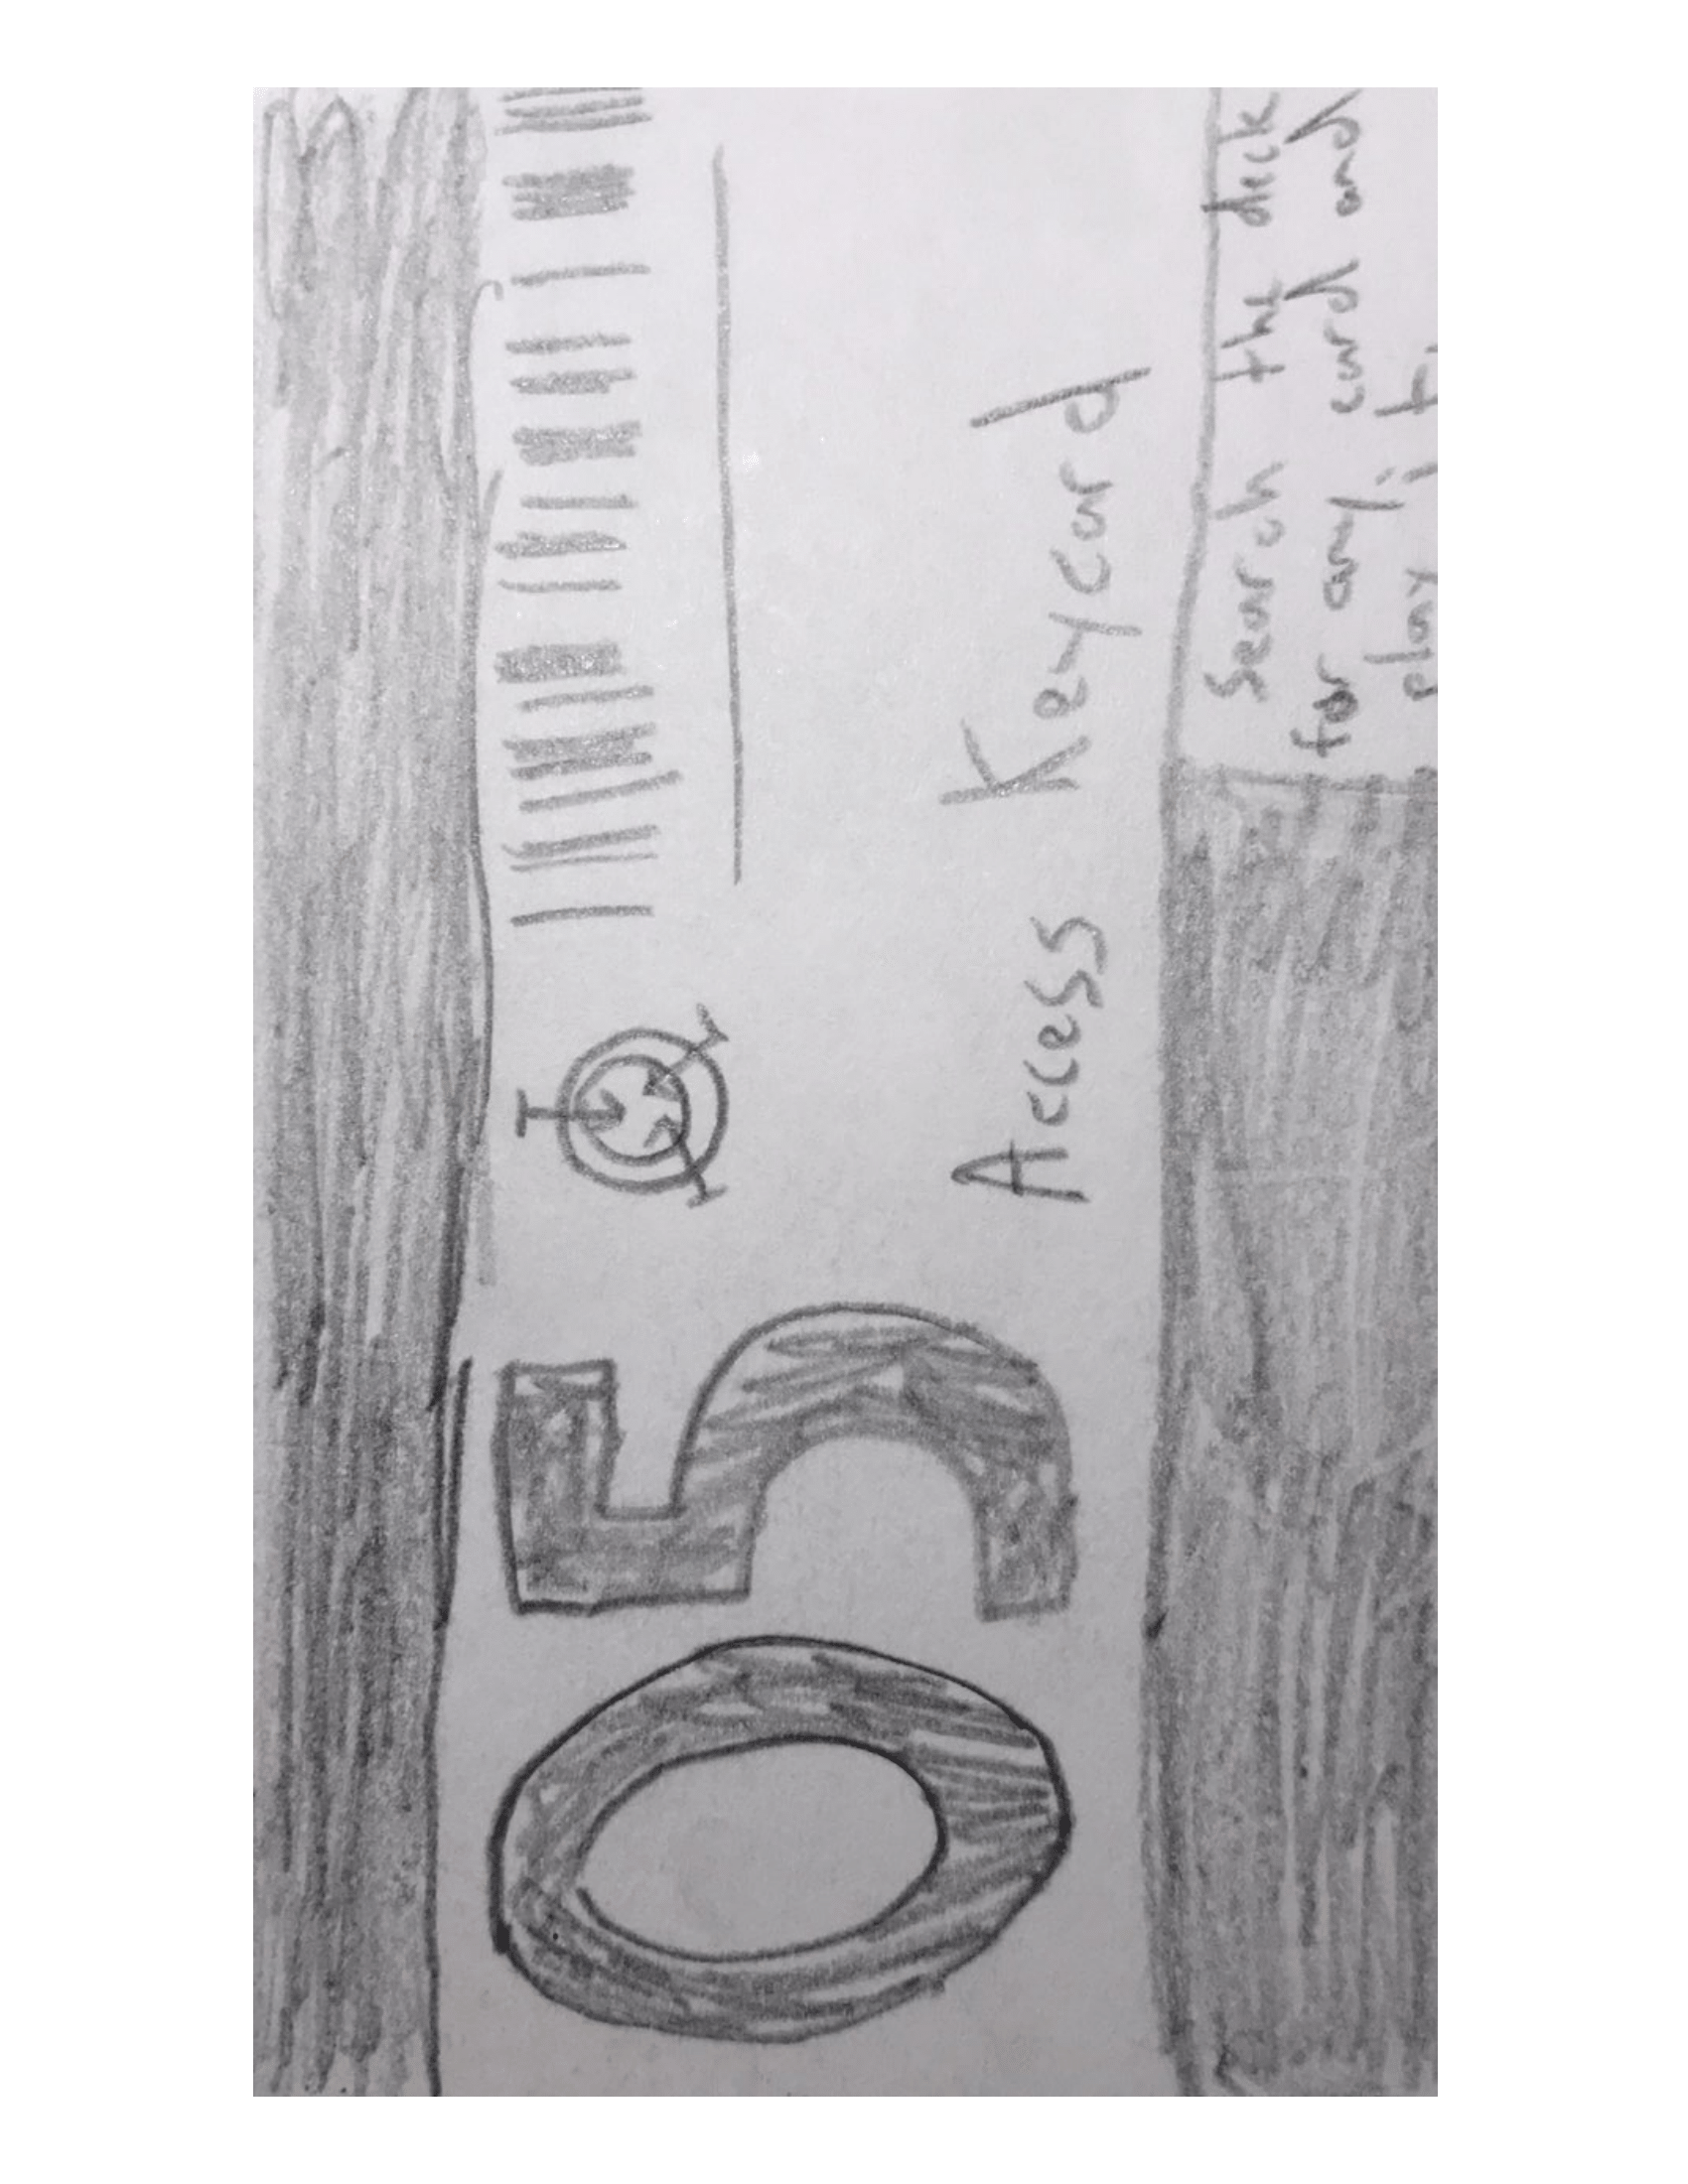 05
Access Keycard
Search the deck
for any card and
play it.